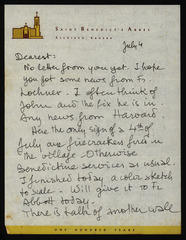 SAINT BENEDICT'S ABBEY
ATCHISON, KANSAS
July 4
Dearest:
No letter from you yet. I hope
you got some news from Fr.
Lochner. I often think of
John and the fix he is in.
Any news from Harvard.
Here the only sign of a 4th of
July are firecrackers fired in
the village. Otherwise
Benedictine services as usual.
I finished today a color sketch
to scale - Will give it to Fr
Abbott today.
There is talk of another wall
ONE HUNDRED YEARS